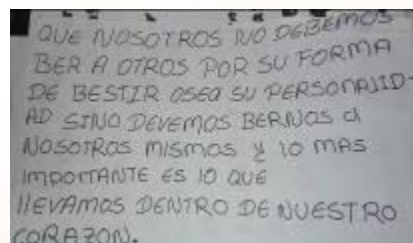 QUE NOSOTROS NO DEBEMOS
BER A OTROS POR SU FORMA
DE BESTIR OSEA SU PERSONALID-
AD SINO DEVEMOS BERNOS a
NOSOTROS MISMOS Y lO MAS
IMPORTANTE ES lO QUE
llEVAMOS DENTRO DE NUESTRO
CORAZON.